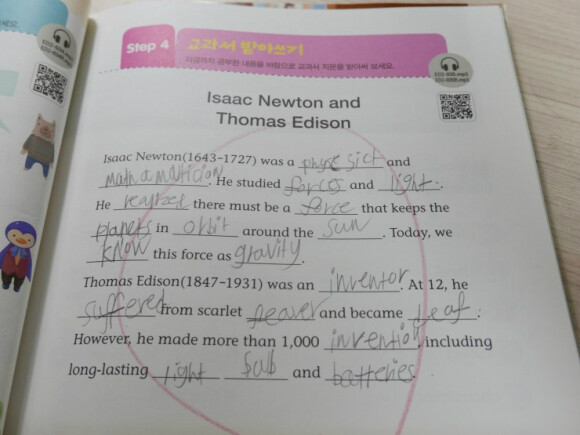 Step 4 교과서 받아쓰기
지금까지 공부한 내용을 바탕으로 교과서 지문을 받아써 보세요.
Isaac Newton and
Thomas Edison
Isaac Newton(1643–1727) was a physe sict and
mathamatician. He studied forces and light.
He realized there must be a force that keeps the
planets in orbit around the sun. Today, we
know this force as gravity.
Thomas Edison(1847–1931) was an inventor. At 12, he
suffered from scarlet feaver and became deaf.
However, he made more than 1,000 invention, including
long-lasting light bub and batteries.